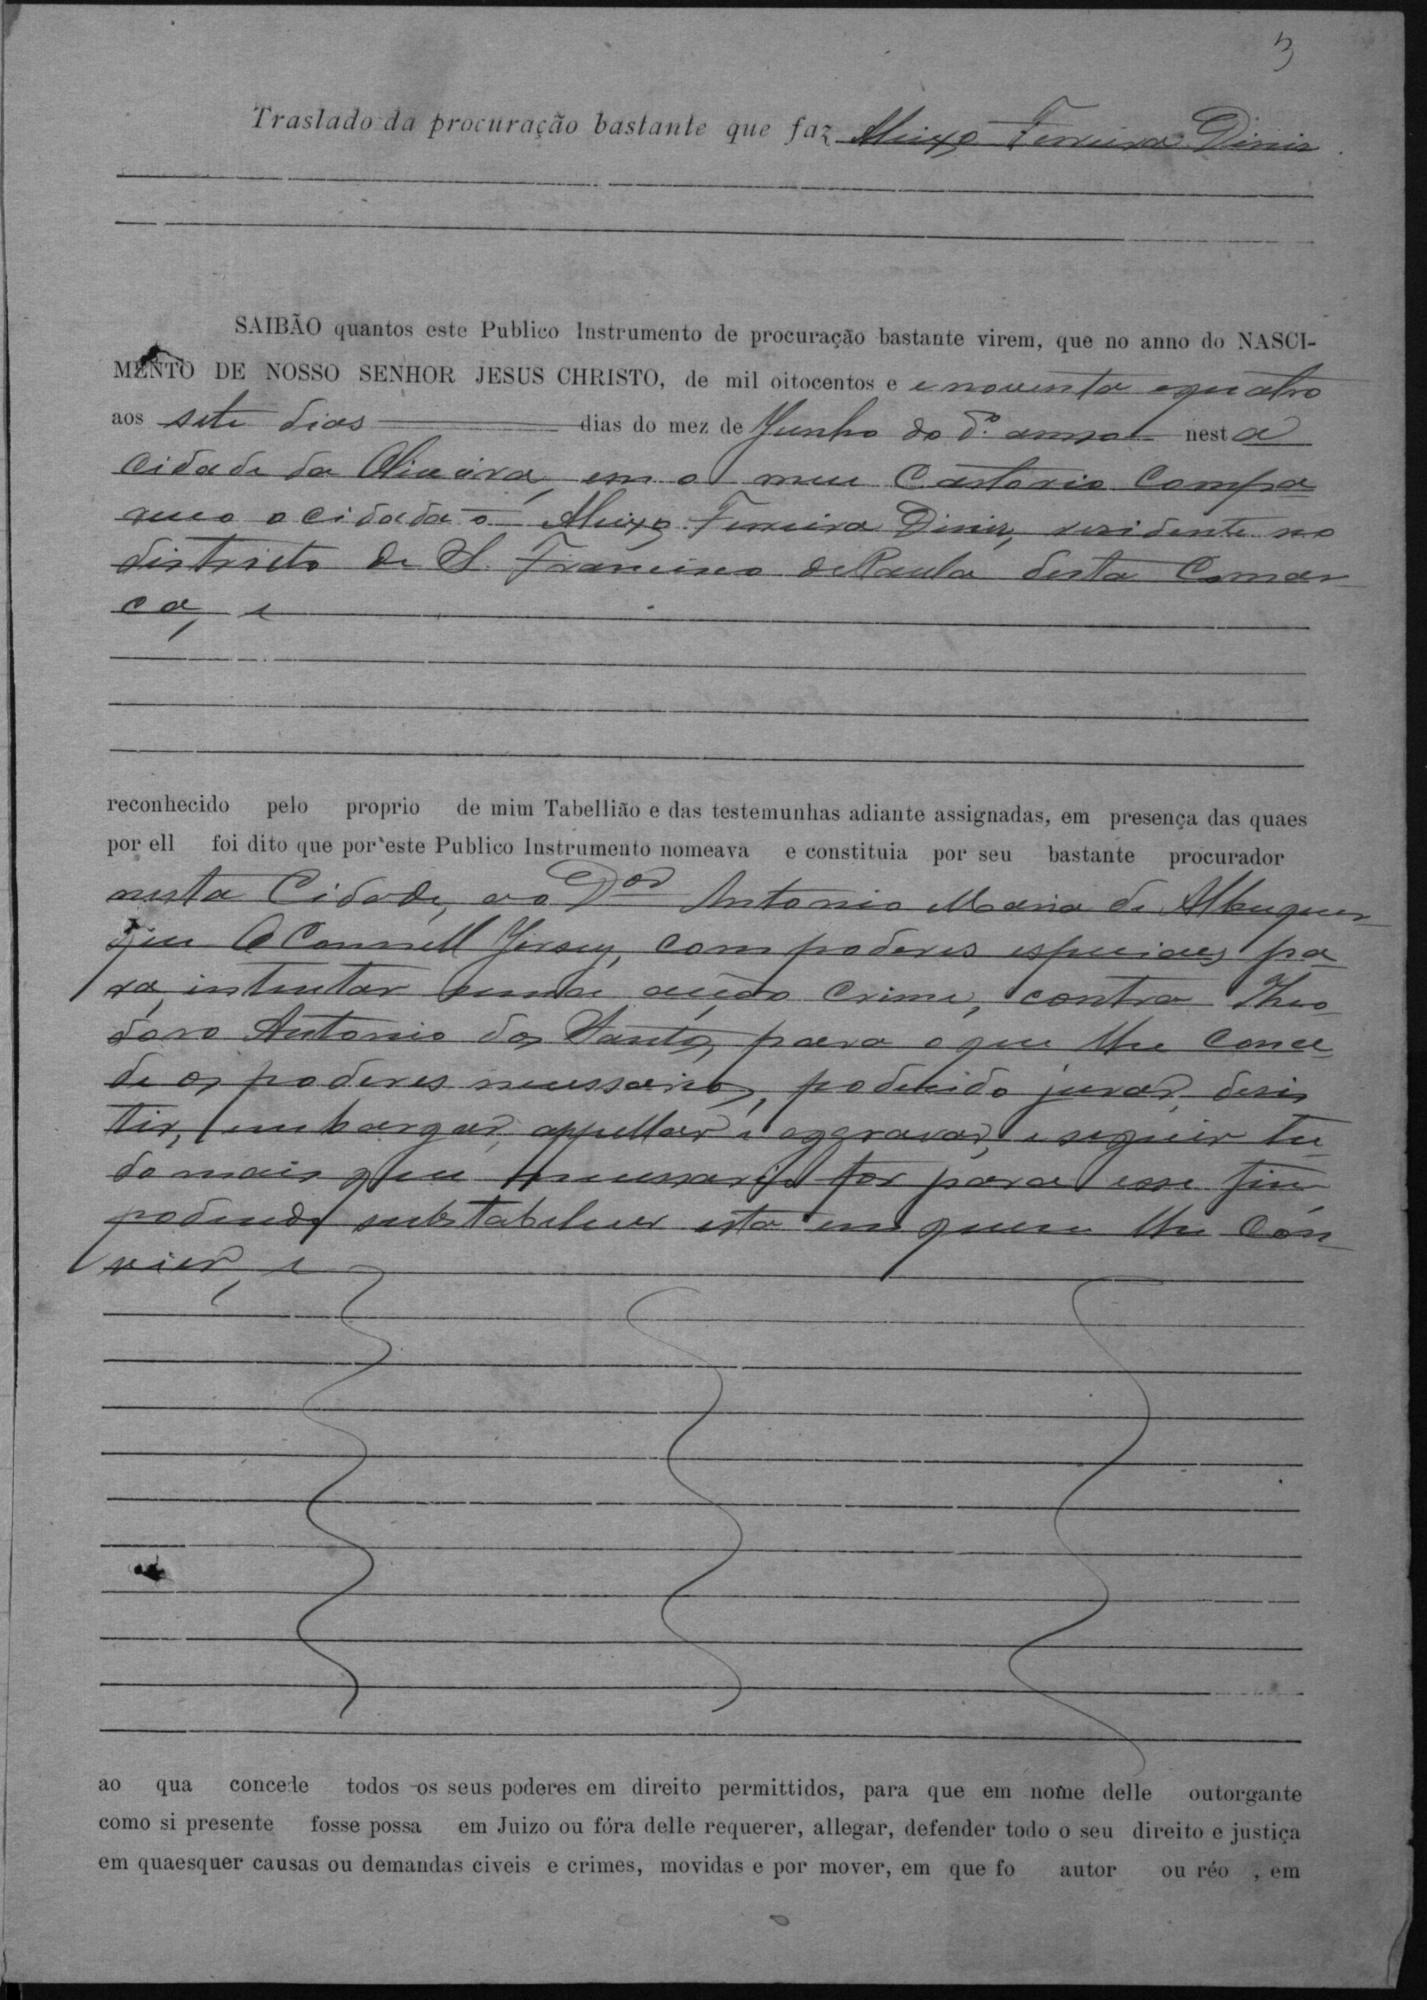 3
Traslado da procuração bastante que faz Aleixo Ferreira Diniz
SAIBÃO quantos este Publico Instrumento de procuração bastante virem, que no anno do NASCI-
MENTO DE NOSSO SENHOR JESUS CHRISTO, de mil oitocentos e e noventa e quatro
aos sete dias dias do mez de Junho do dº anno nesta
Cidade da Oliveira, em o meu Cartorio Compa
receo o cidadaõ Aleixo Ferreira Diniz, residente no
districto de S. Francisco de Paula desta Comar
ca, e
reconhecido pelo proprio de mim Tabellião e das testemunhas adiante assignadas, em presença das quaes
por ell foi dito que por este Publico Instrumento nomeava e constituia por seu bastante procurador
nesta Cidade, ao Dor Antonio Maria de Albuquer
que O Connell Jersey, com poderes especiaes pa
ra, intentar uma acção crime, contra Theo
doro Antonio dos Santos, para o que lhe conce
de os poderes necessarios, podendo jurar, desis
tir, embargar, appellar e aggravar, e seguir tu
do mais que necessario for para esse fim
podendo substabelecer esta em quem lhe con
vier, e
ao qua concede todos os seus poderes em direito permittidos, para que em nome delle outorgante
como si presente fosse possa em Juizo ou fóra delle requerer, allegar, defender todo o seu direito e justiça
em quaesquer causas ou demandas civeis e crimes, movidas e por mover, em que fo autor ou réo , em